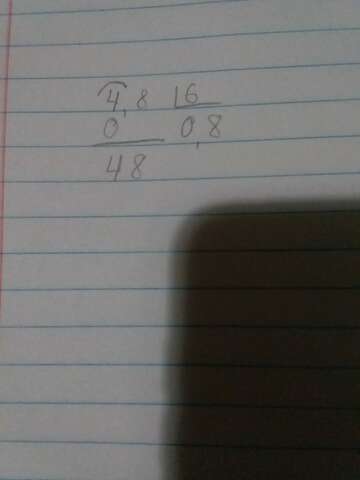 4,8 6
0 0,8
48